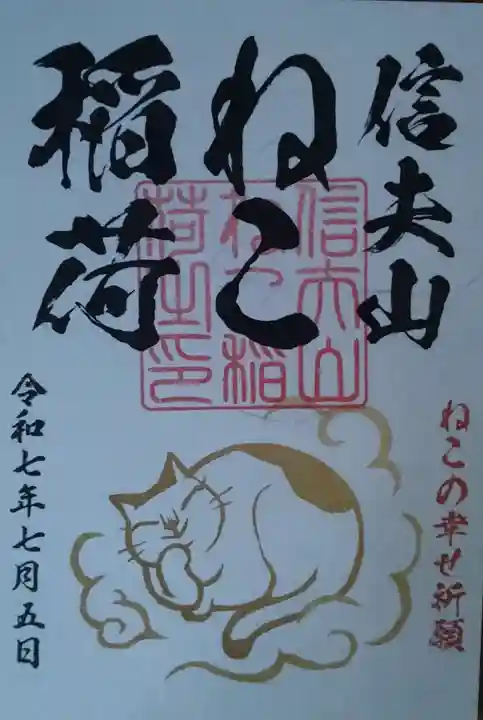 信夫山
ねこ
稲荷
信夫山
ねこ稲
荷之印
ねこの幸せ祈願
令和七年七月五日